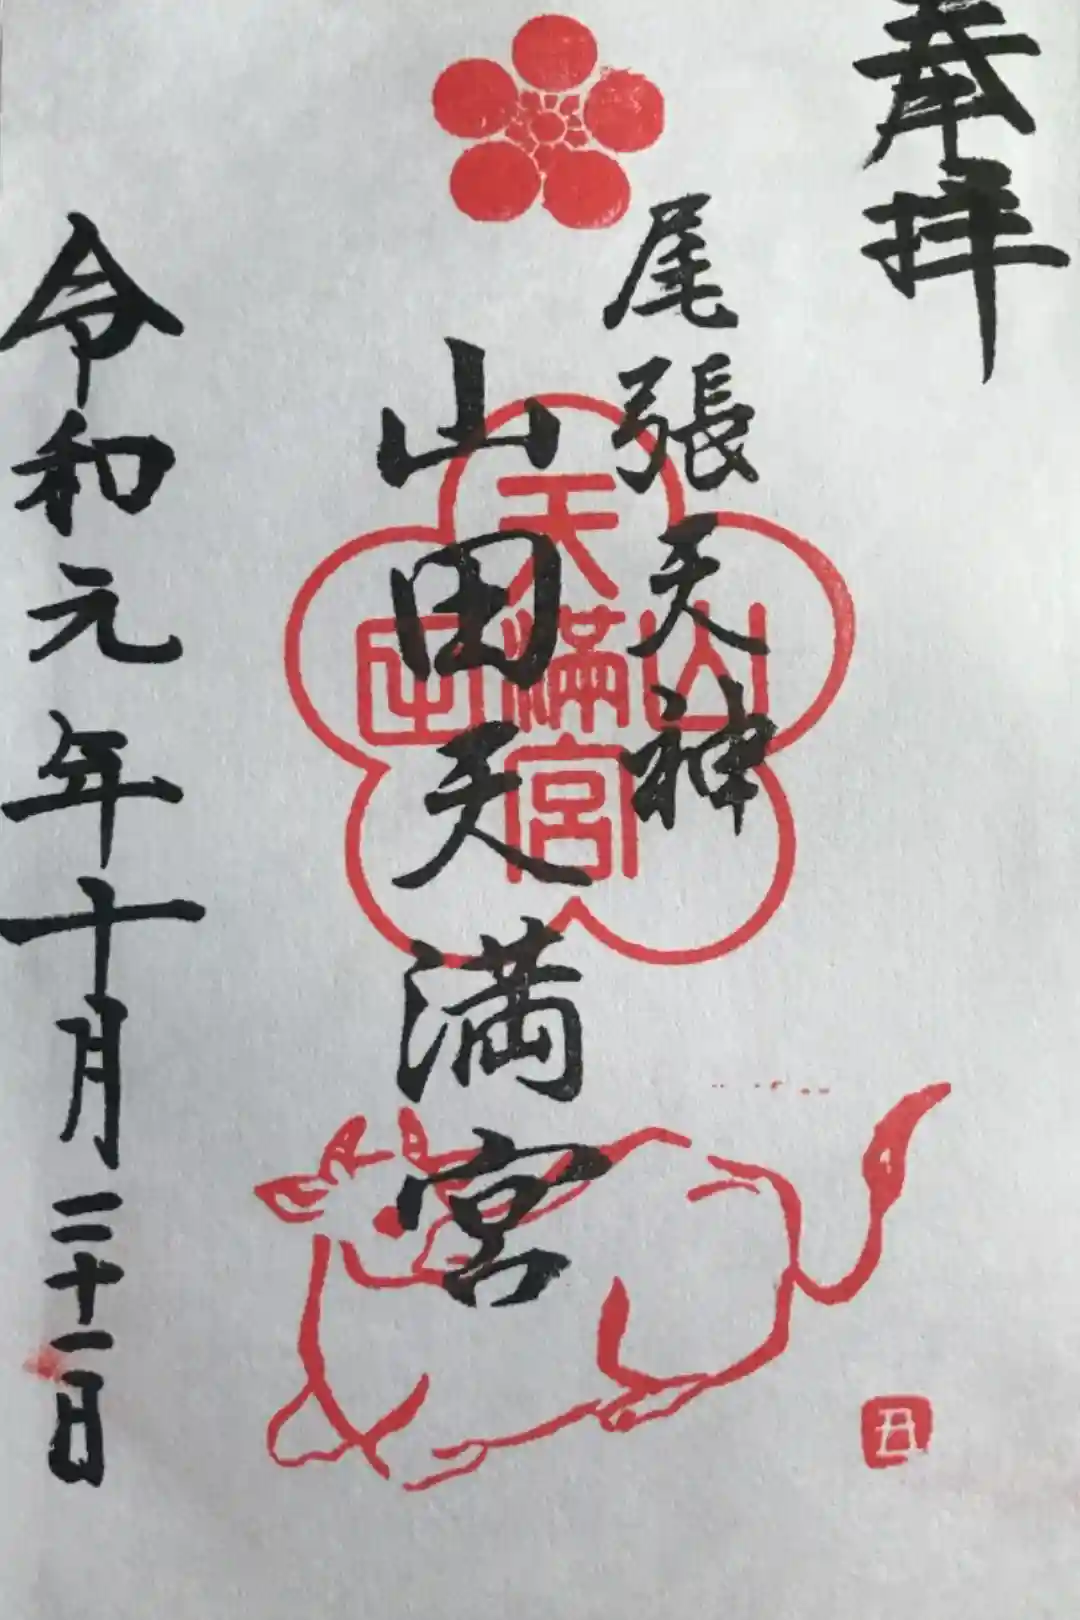 奉拝
尾張天神
山田天満宮
令和元年十月二十一日
山田天満宮